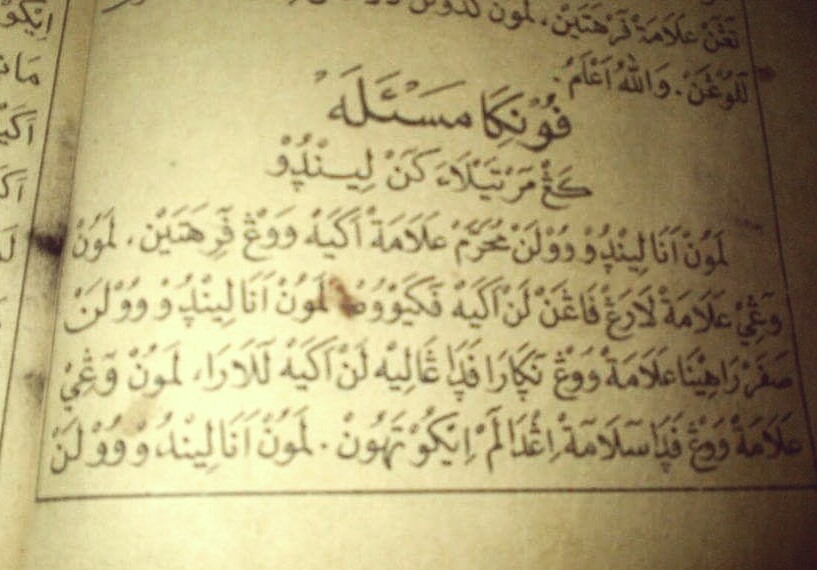 علامة فَرْهَتَيْن، لَمُون
للوڠَنْ. وَاللهُ اَعْلَمُ.
فُوْنِكَا مَسْئَلَهْ
كَڠْ مَرْتَيْلَاءَكَنْ لِيْنْڊُوْ
لَمُوْنْ اَنَا لِيْنْڊُوْ وُوْلَنْ مُحَرَّمْ عَلَامَةْ اَكَيْهْ وَوْڠْ فَرِهَتَيْن، لَمُوْنْ
وَڠِيْ عَلَامَةْ لَارَڠْ فَاڠَنْ لَنْ اَكَيْهْ فَكَيْوُوْه لَمُوْنْ اَنَا لِيْنْڊُوْ وُوْلَنْ
صَفَرْ رَاهِيْنَا عَلَامَةْ وَوْڠْ فَڊَا ڠَالِيْهْ لَنْ اَكَيْهْ لَلَارَا، لَمُوْنْ وَڠِيْ
عَلَامَةْ وَوْڠْ فَڊَا سَلَامَةْ اِڠْدَالَمْ اِيْكُوْ تَهُوْنْ. لَمُوْنْ اَنَا لِيْنْڊُوْ وُوْلَنْ